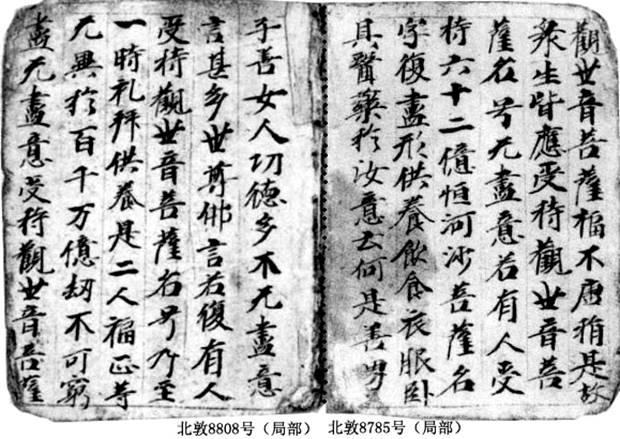 觀世音菩薩福不唐捐是故
衆生皆應受持觀世音菩
薩名号无盡意若有人受
持六十二億恒河沙菩薩名
字復盡形供養飲食衣服卧
具醫藥於汝意云何是善男
子善女人功德多不无盡意
言甚多世尊佛言若復有人
受持觀世音菩薩名号乃至
一時礼拜供養是二人福正等
无異於百千万億劫不可窮
盡无盡意受持觀世音菩薩
北敦8808号（局部） 北敦8785号（局部）